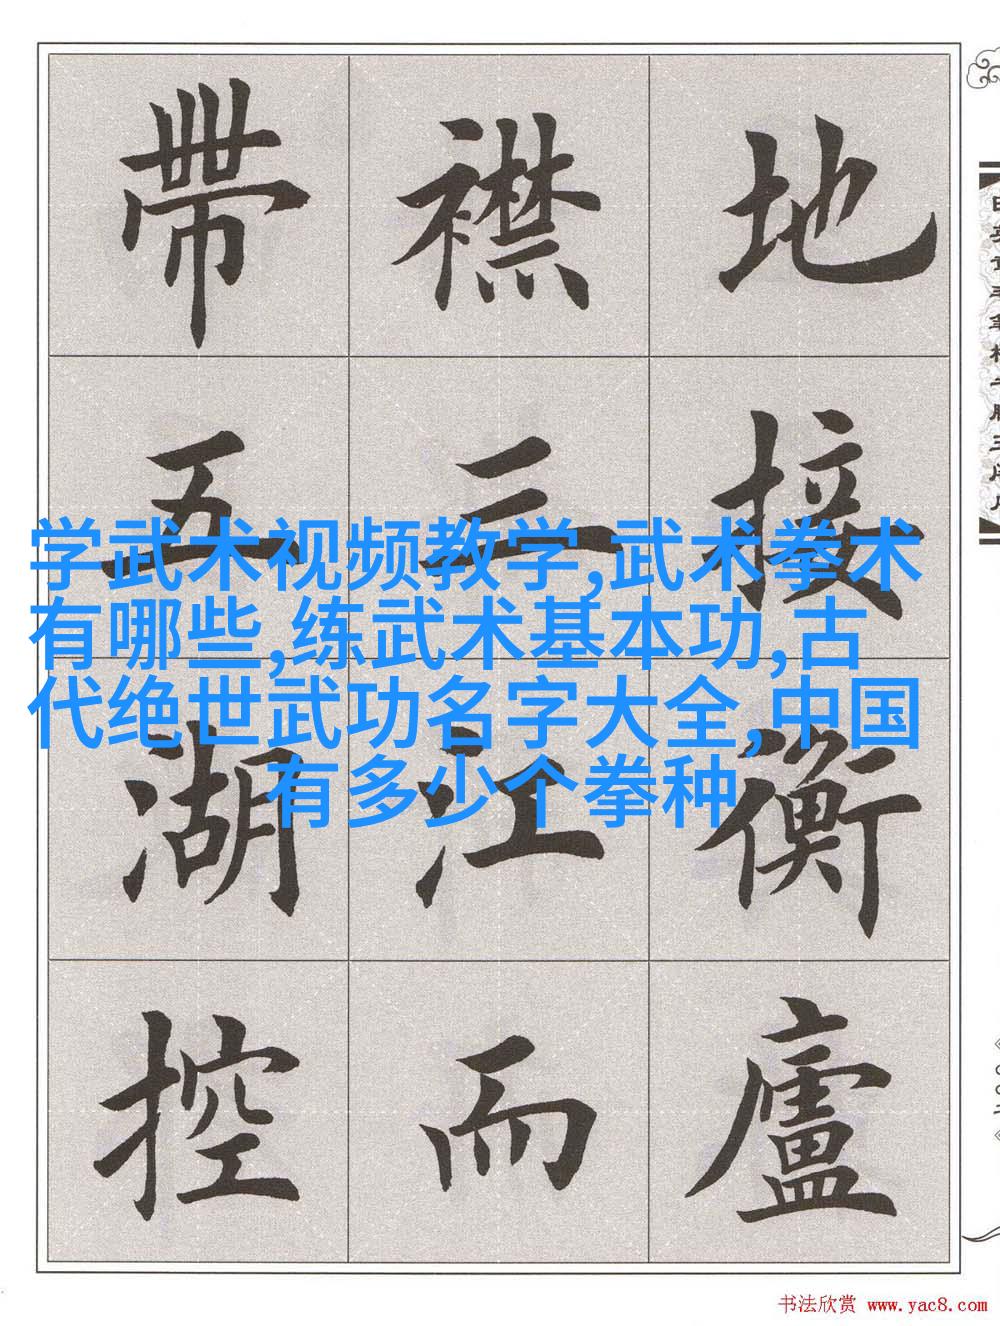 地接衡廬
襟三江而
帶五湖控
学武术视频教学,武术拳术
有哪些,练武术基本功,古
代绝世武功名字大全,中国
有多少个拳种
书法欣赏 www.yac8.com